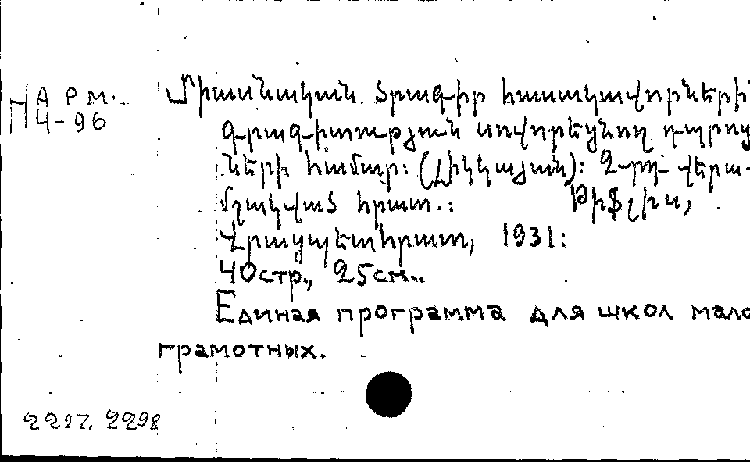 АРМ.
Ч-96
Միասնական ծրագիր հասակավորների
գրագիտության սովորեցնող դպրոց
ների համար: (Լիկկայան): 2-րդ վերա-
մշակված հրատ.: Թիֆլիս,
Վրացպետհրատ, 1931:
40стр., 25см..
Единая программа для школ мало
грамотных.
2297, 2298